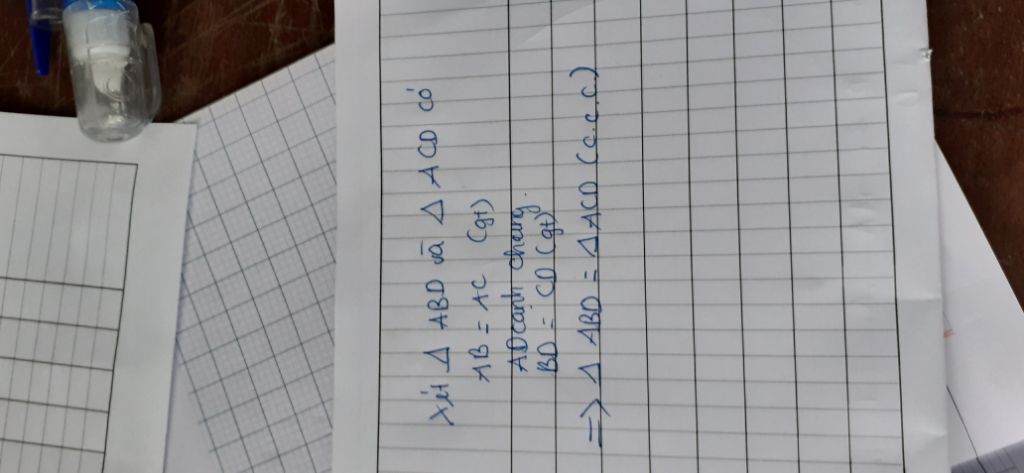 Xét Δ ABD và Δ ACD có
AB = AC (gt)
AD cạnh chung.
BD = CD (gt)
=> Δ ABD = Δ ACD (c.c.c)